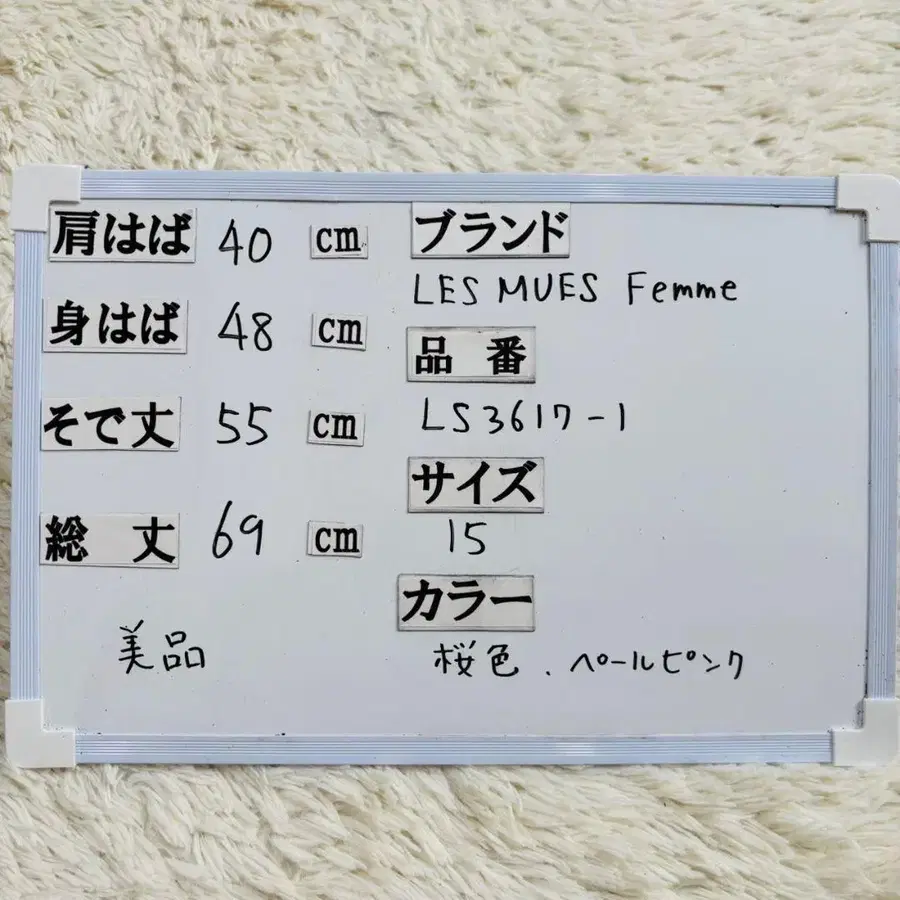 肩はば 40 cm
身はば 48 cm
そで丈 55 cm
総 丈 69 cm
美品
ブランド
LES MUES Femme
品 番
LS3617-1
サイズ
15
カラー
桜色.ペールピンク